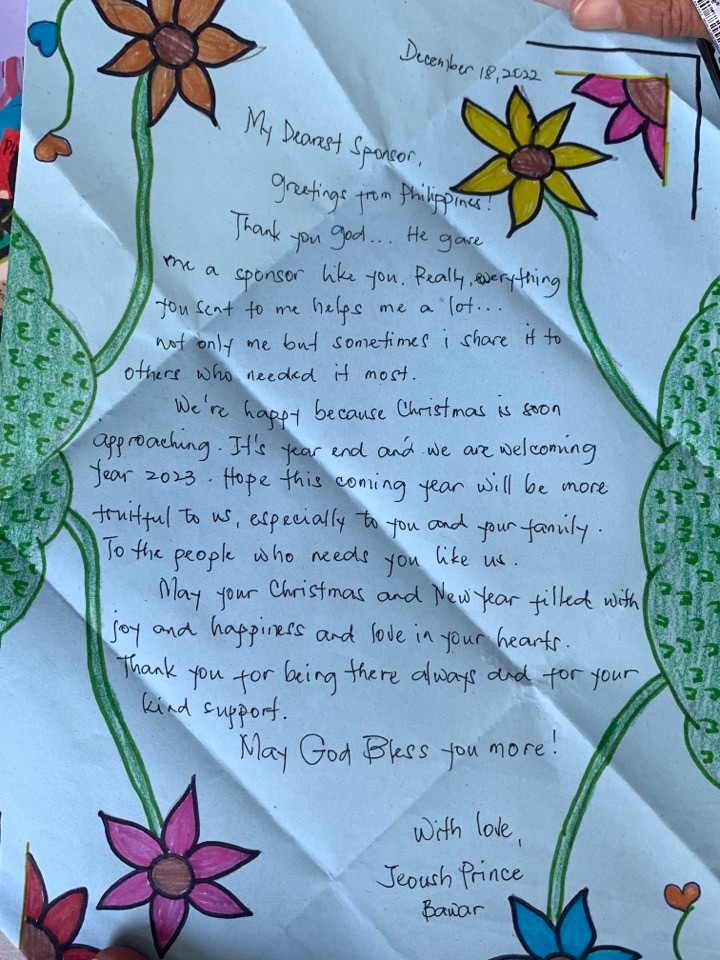 December 18, 2022
My Dearest Sponsor,
Greetings from Philippines!
Thank you god... He gave
me a sponsor like you. Really, everything
you sent to me helps me a lot...
not only me but sometimes i share it to
others who needed it most.
We're happy because Christmas is soon
approaching. It's year end and we are welcoming
year 2023. Hope this coming year will be more
fruitful to us, especially to you and your family.
To the people who needs you like us.
May your Christmas and New Year filled with
joy and happiness and love in your hearts.
Thank you for being there always and for your
kind support.
May God Bless you more!
With love,
Jeoush Prince
Bawar